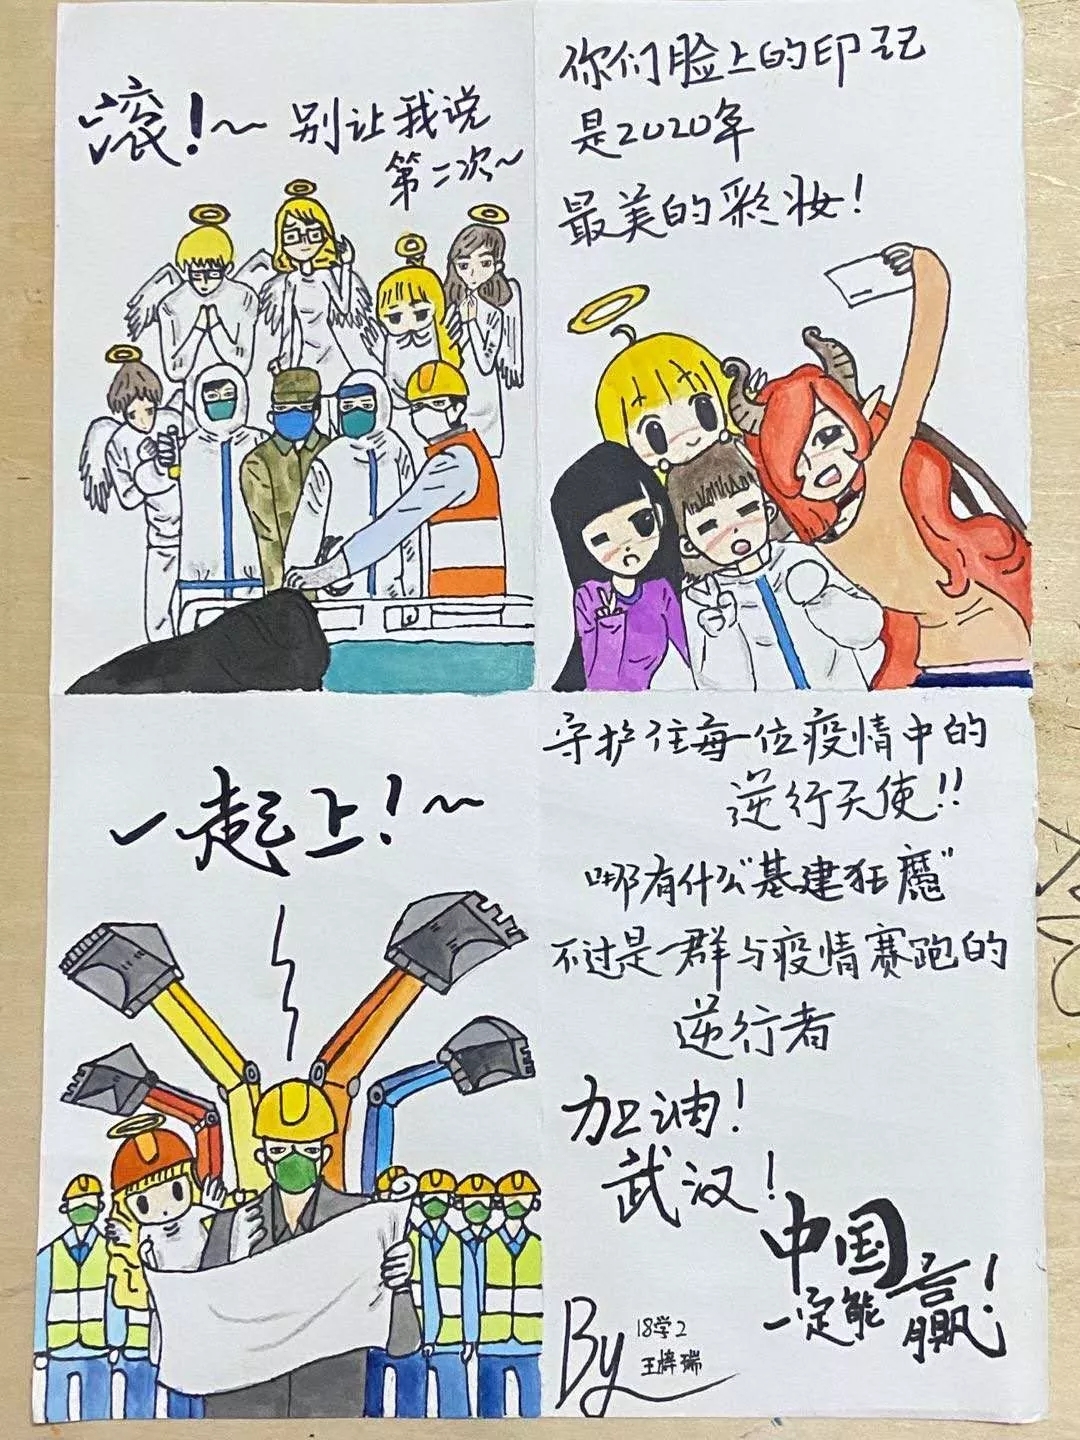 滚!~ 别让我说
第二次~
你们脸上的印记
是2020年
最美的彩妆!
一起上!~
守护住每一位疫情中的
逆行天使!!
哪有什么“基建狂魔”
不过是一群与疫情赛跑的
逆行者
加油!
武汉!
中国
一定能赢!
By
18学2
王梓瑞